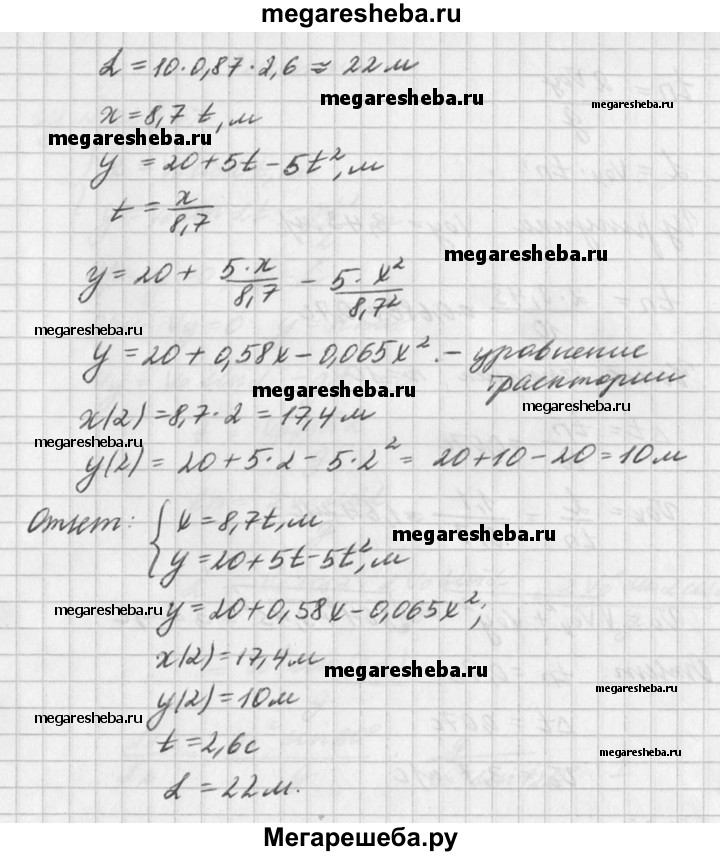 megaresheba.ru
L = 10·0,87·2,6 ≈ 22 м
megaresheba.ru
megaresheba.ru
x = 8,7 t, м
megaresheba.ru
y = 20 + 5t − 5t², м
t = x/8,7
megaresheba.ru
y = 20 + 5·x/8,7 − 5·x²/8,7²
megaresheba.ru
y = 20 + 0,58x − 0,065x². – уравнение
траектории
megaresheba.ru
megaresheba.ru
x(2) = 8,7·2 = 17,4 м
megaresheba.ru
y(2) = 20 + 5·2 − 5·2² = 20 + 10 − 20 = 10 м
Ответ: { x = 8,7t, м
megaresheba.ru
y = 20 + 5t − 5t², м
megaresheba.ru
y = 20 + 0,58x − 0,065x²;
x(2) = 17,4 м
megaresheba.ru
megaresheba.ru
y(2) = 10 м
megaresheba.ru
t = 2,6 с
megaresheba.ru
L = 22 м.
Мегарешеба.ру